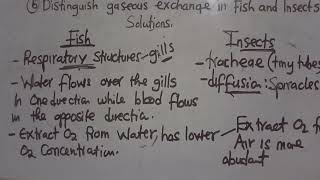 (b) Distinguish gaseous exchange in Fish and Insects
Solutions.
Fish
- Respiratory Structures - gills
- Water flows over the gills
in one direction while blood flows
in the opposite directio.
- Extract O2 from Water, has lower
O2 Concentration.
Insects
- tracheae (tiny tubes
- diffusion: Spiracles
- Extract O2 f
Air is more
abundant